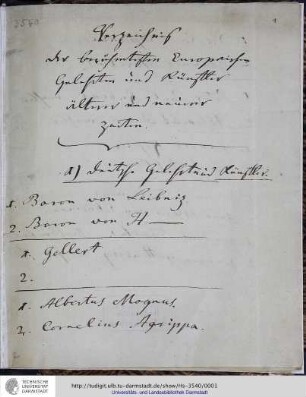 3540
1
Verzeichnis
der berühmtesten Europäischen
Gelehrten und Künstler
älterer und neuerer
Zeiten.
a) Deutsche Gelehrte und Künstler.
1. Baron von Leibniz
2. Baron von H
1. Gellert
2.
1. Albertus Magnus
2. Cornelius Agrippa.
http://tudigit.ulb.tu-darmstadt.de/show/Hs-3540/0001
Universitäts- und Landesbibliothek Darmstadt